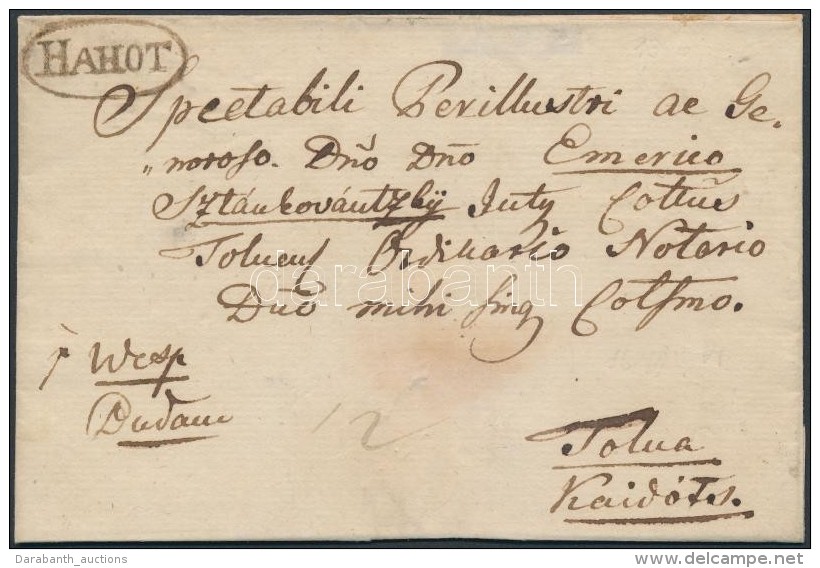 HAHOT
Spectabili Perillustri ac Ge-
„neroso. Dno Dno Emerico
Sztánkovántzky Inty Cottus
Tolnens Ordinario Notario
Dno mihi sing Colssmo.
darabanth
p Wesp
Dudam
12
Tolna
Kaidóts.
Darabanth_auctions
www.delcampe.net